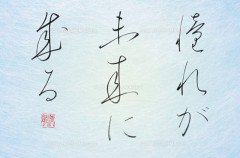 憧れが
未来に
成る